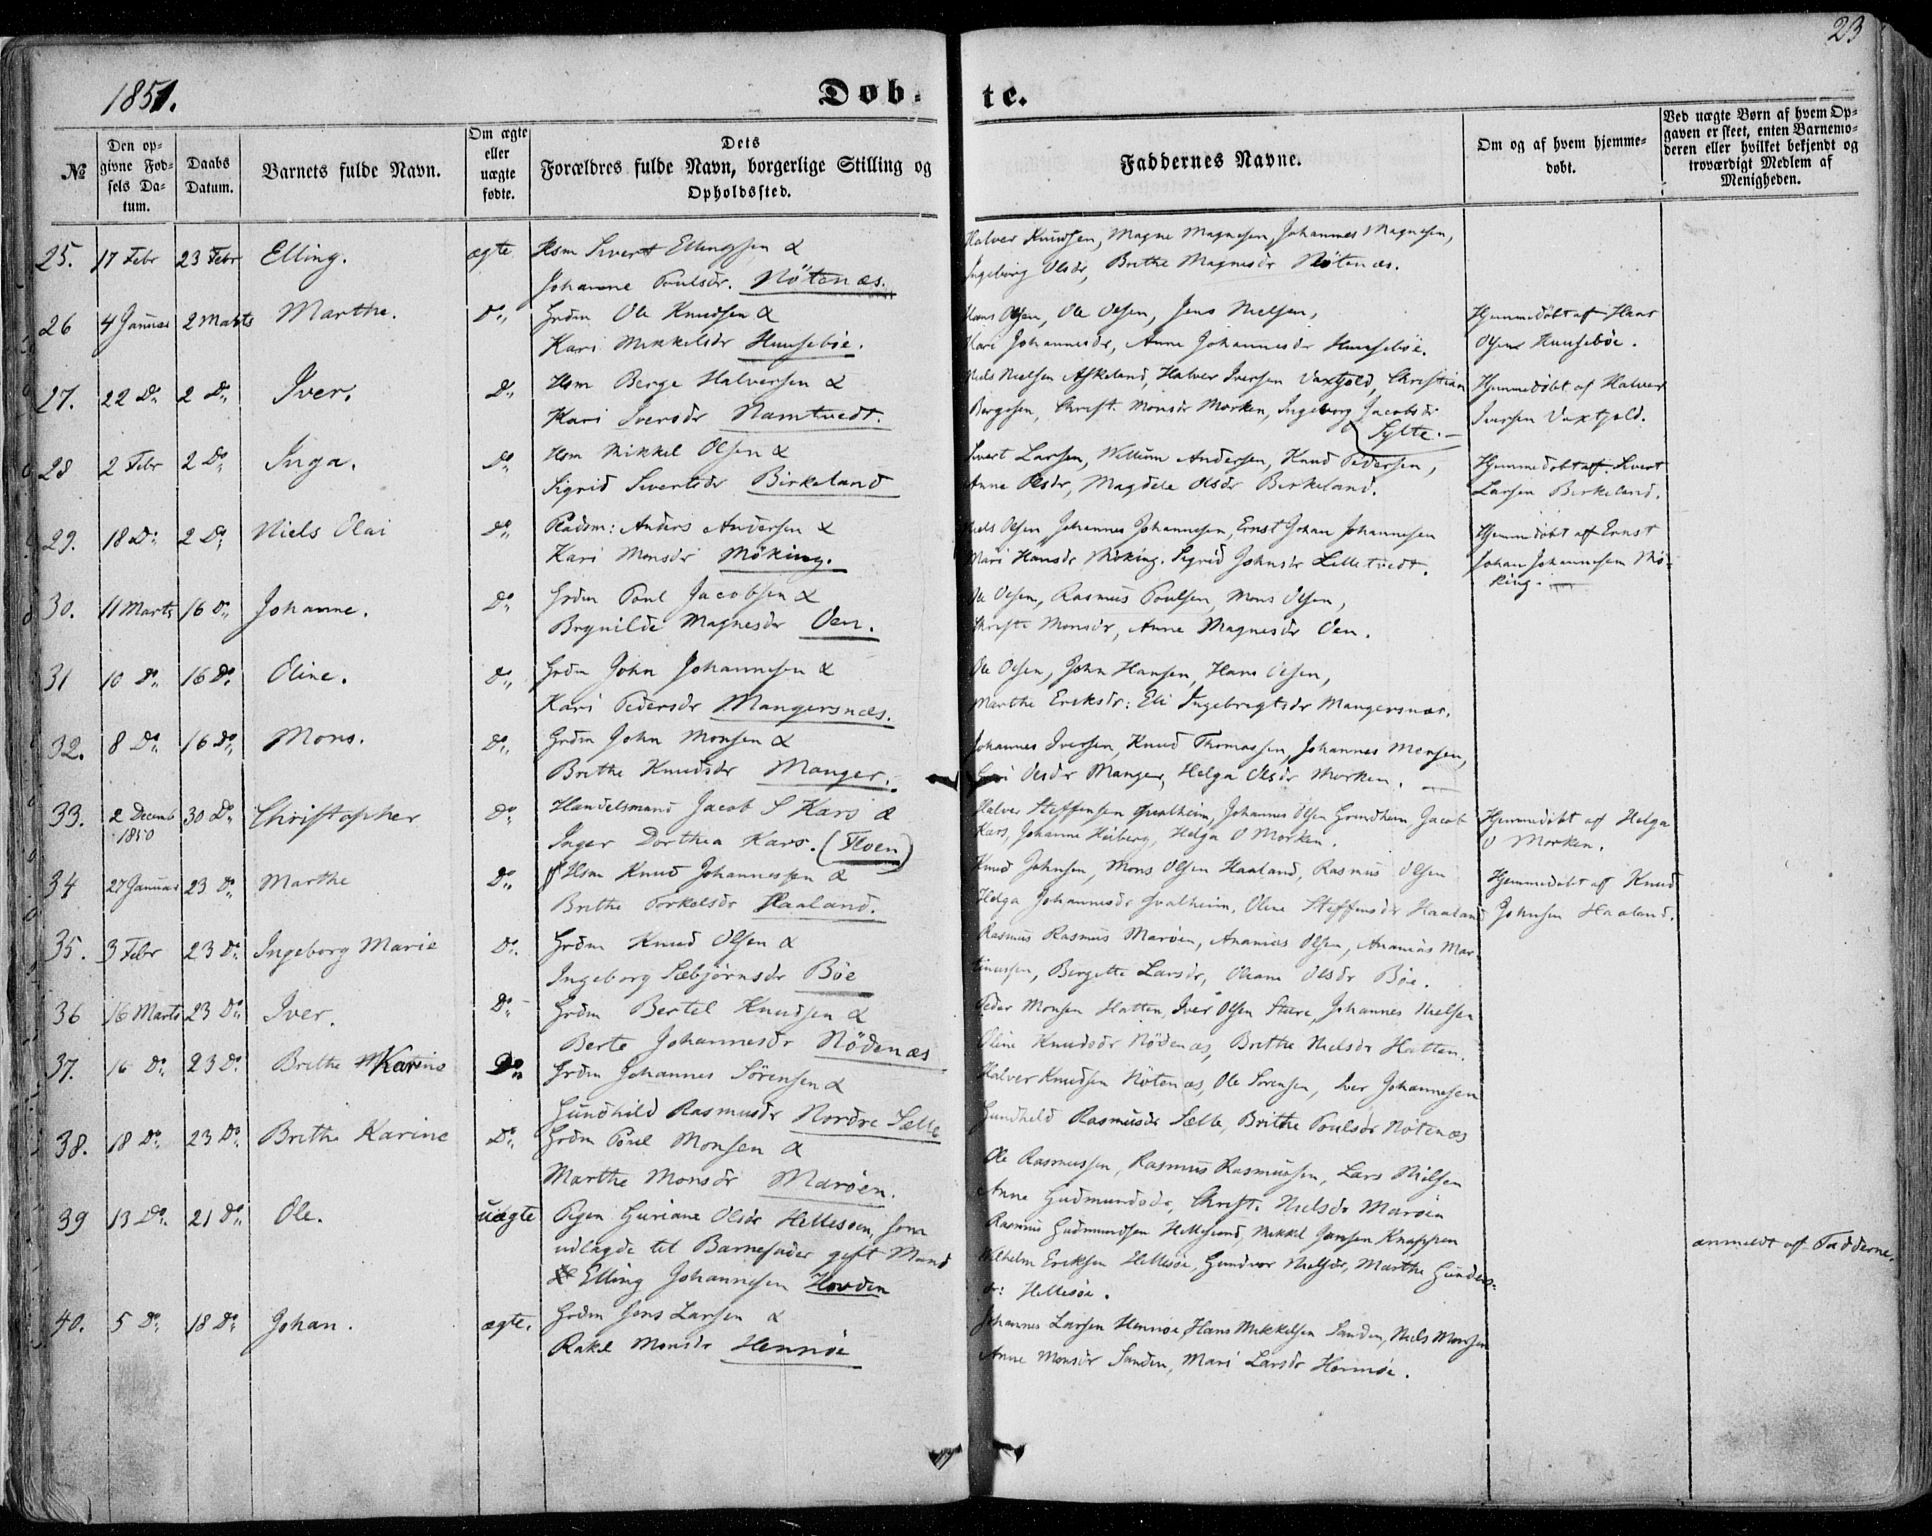 23
1851.
Døb-te.
№
Den opgivne Fødsels Datum.
Daabs Datum.
Barnets fulde Navn.
Om ægte eller uægte fødte.
Dets Forældres fulde Navn, borgerlige Stilling og Opholdssted.
Faddernes Navne.
Om og af hvem hjemmedøbt.
Ved uægte Børn af hvem Opgaven er skeet, enten Barnemoderen eller hvilket bekjendt og troværdigt Medlem af Menigheden.
25. 17 Febr 23 Febr Elling. ægte Hsm Sivert Ellingsen &
Johanne Poulsdr. Nötenæs.
Halver Knudsen, Magne Magnesen, Johannes Magnesen,
Ingeborg Olsdr, Brithe Magnesdr Nötenæs.
26 4 Januar 2 Marts Marthe. Do Grdm Ole Knudsen &
Kari Mikkelsdr Huusebøe.
Hans Olsen, Ole Olsen, Jens Nielsen,
Kari Johannesdr, Anne Johannesdr Huusebøe.
Hjemmedøbt af Hans
Olsen Huusebøe.
27. 22 Do 2 Do Iver. Do Hsm Berge Halversen &
Kari Iversdr Namtvedt.
Niels Nielsen Askeland, Halver Iversen Vaxtjold, Christian
Bergesen, Christi Monsdr Morken, Ingeborg Jacobsdr
Sylte.
Hjemmedøbt af Halver
Iversen Vaxtjold.
28 2 Febr 2 Do Inga. Do Hsm Mikkel Olsen &
Sigrid Sivertsdr Birkeland
Sivert Larsen, Willum Andersen, Knud Pedersen,
Anne Olsdr, Magdele Olsdr Birkeland.
Hjemmedøbt af Sivert
Larsen Birkeland.
29. 18 Do 2 Do Niels Olai Do Pladsm: Anders Andersen &
Kari Monsdr Möking.
Niels Olsen, Johannes Johannesen, Ernst Johan Johannesen
Mari Hansdr Möking. Sigrid Johnsdr Lilletvedt.
Hjemmedøbt af Ernst
Johan Johannesen Mö-
king.
30. 11 Marts 16 Do Johanne. Do Grdm Poul Jacobsen &
Brynilde Magnesdr Oen.
Ole Olsen, Rasmus Poulsen, Mons Olsen,
Christi Monsdr, Anne Magnesdr Oen.
31 10 Do 16 Do Oline. Do Grdm John Johannesen &
Kari Pedersdr Mangersnæs.
Ole Olsen, John Hansen, Hans Olsen,
Marthe Eriksdr: Eli Ingebregtsdr Mangersnæs.
32. 8 Do 16 Do Mons. Do Grdm John Monsen &
Brithe Knudsdr Manger.
Johannes Iversen, Knud Thomassen, Johannes Monsen,
Olsdr Manger, Helga Olsdr Morken.
33. 2 Decemb 1850 30 Do Christopher Do Handelsmand Jacob S Kars &
Inger Dorthea Kars. (Floen)
Halver Steffensen Qvalheim, Johannes Olsen Grindheim, Jacob
Kars, Johanne Heiberg, Helga O Morken.
Hjemmedøbt af Helga
O Morken.
34 27 Januar 23 Do Marthe Do Hsm Knud Johannessen &
Brithe Torkelsdr Haaland.
Knud Johnsen, Mons Olsen Haaland, Rasmus Olsen
Helga Johannesdr Qvalheim, Oline Steffensdr Haaland
Hjemmedøbt af Knud
Johnsen Haaland.
35. 3 Febr 23 Do Ingeborg Marie Do Grdm Knud Olsen &
Ingeborg Sæbjörnsdr Böe
Rasmus Rasmus Maröen, Ananias Olsen, Ananias Mar
tinussen, Bergette Larsdr, Oleane Olsdr Böe.
36 16 Marts 23 Do Iver. Do Grdm Bertel Knudsen &
Berte Johannesdr Nödenæs
Peder Monsen Hatten, Iver Olsen Sture, Johannes Nielsen
Oline Knudsdr Nödenæs, Brithe Nielsdr Hatten.
37. 16 Do 23 Do Brithe Karine Do Grdm Johannes Sörensen &
Gundhild Rasmusdr Nordre Sælle
Halver Knudsen Nötenæs, Ole Sorensen, Iver Johannesen
Gundheld Rasmusdr Sælle, Brithe Poulsdr Nötenæs
38. 18 Do 23 Do Brithe Karine Do Grdm Poul Monsen &
Marthe Monsdr Maröen.
Ole Rasmussen, Rasmus Rasmussen, Lars Nielsen
Anne Gudmundsdr, Christi Nielsdr Maröen
39 13 Do 21 Do Ole. uægte Pigen Guriane Olsdr Hellesøen, som
udlagde til Barnefader gift Mand
Elling Johannesen Hovden
Rasmus Gudmundsen Hellesund, Mikkel Jansen Knappen
Wilhelm Eriksen Hellesøe, Gundvor Nielsdr, Marthe Gunders-
dr: Hellesøe.
anmeldt af Fadderne.
40. 5 Do 18 Do Johan. ægte. Grdm Jens Larsen &
Rakel Monsdr Hennöe
Johannes Larsen Hennøe, Hans Mikkelsen Sanden, Niels Monsen
Anne Monsdr Sanden, Mari Larsdr Hennöe.